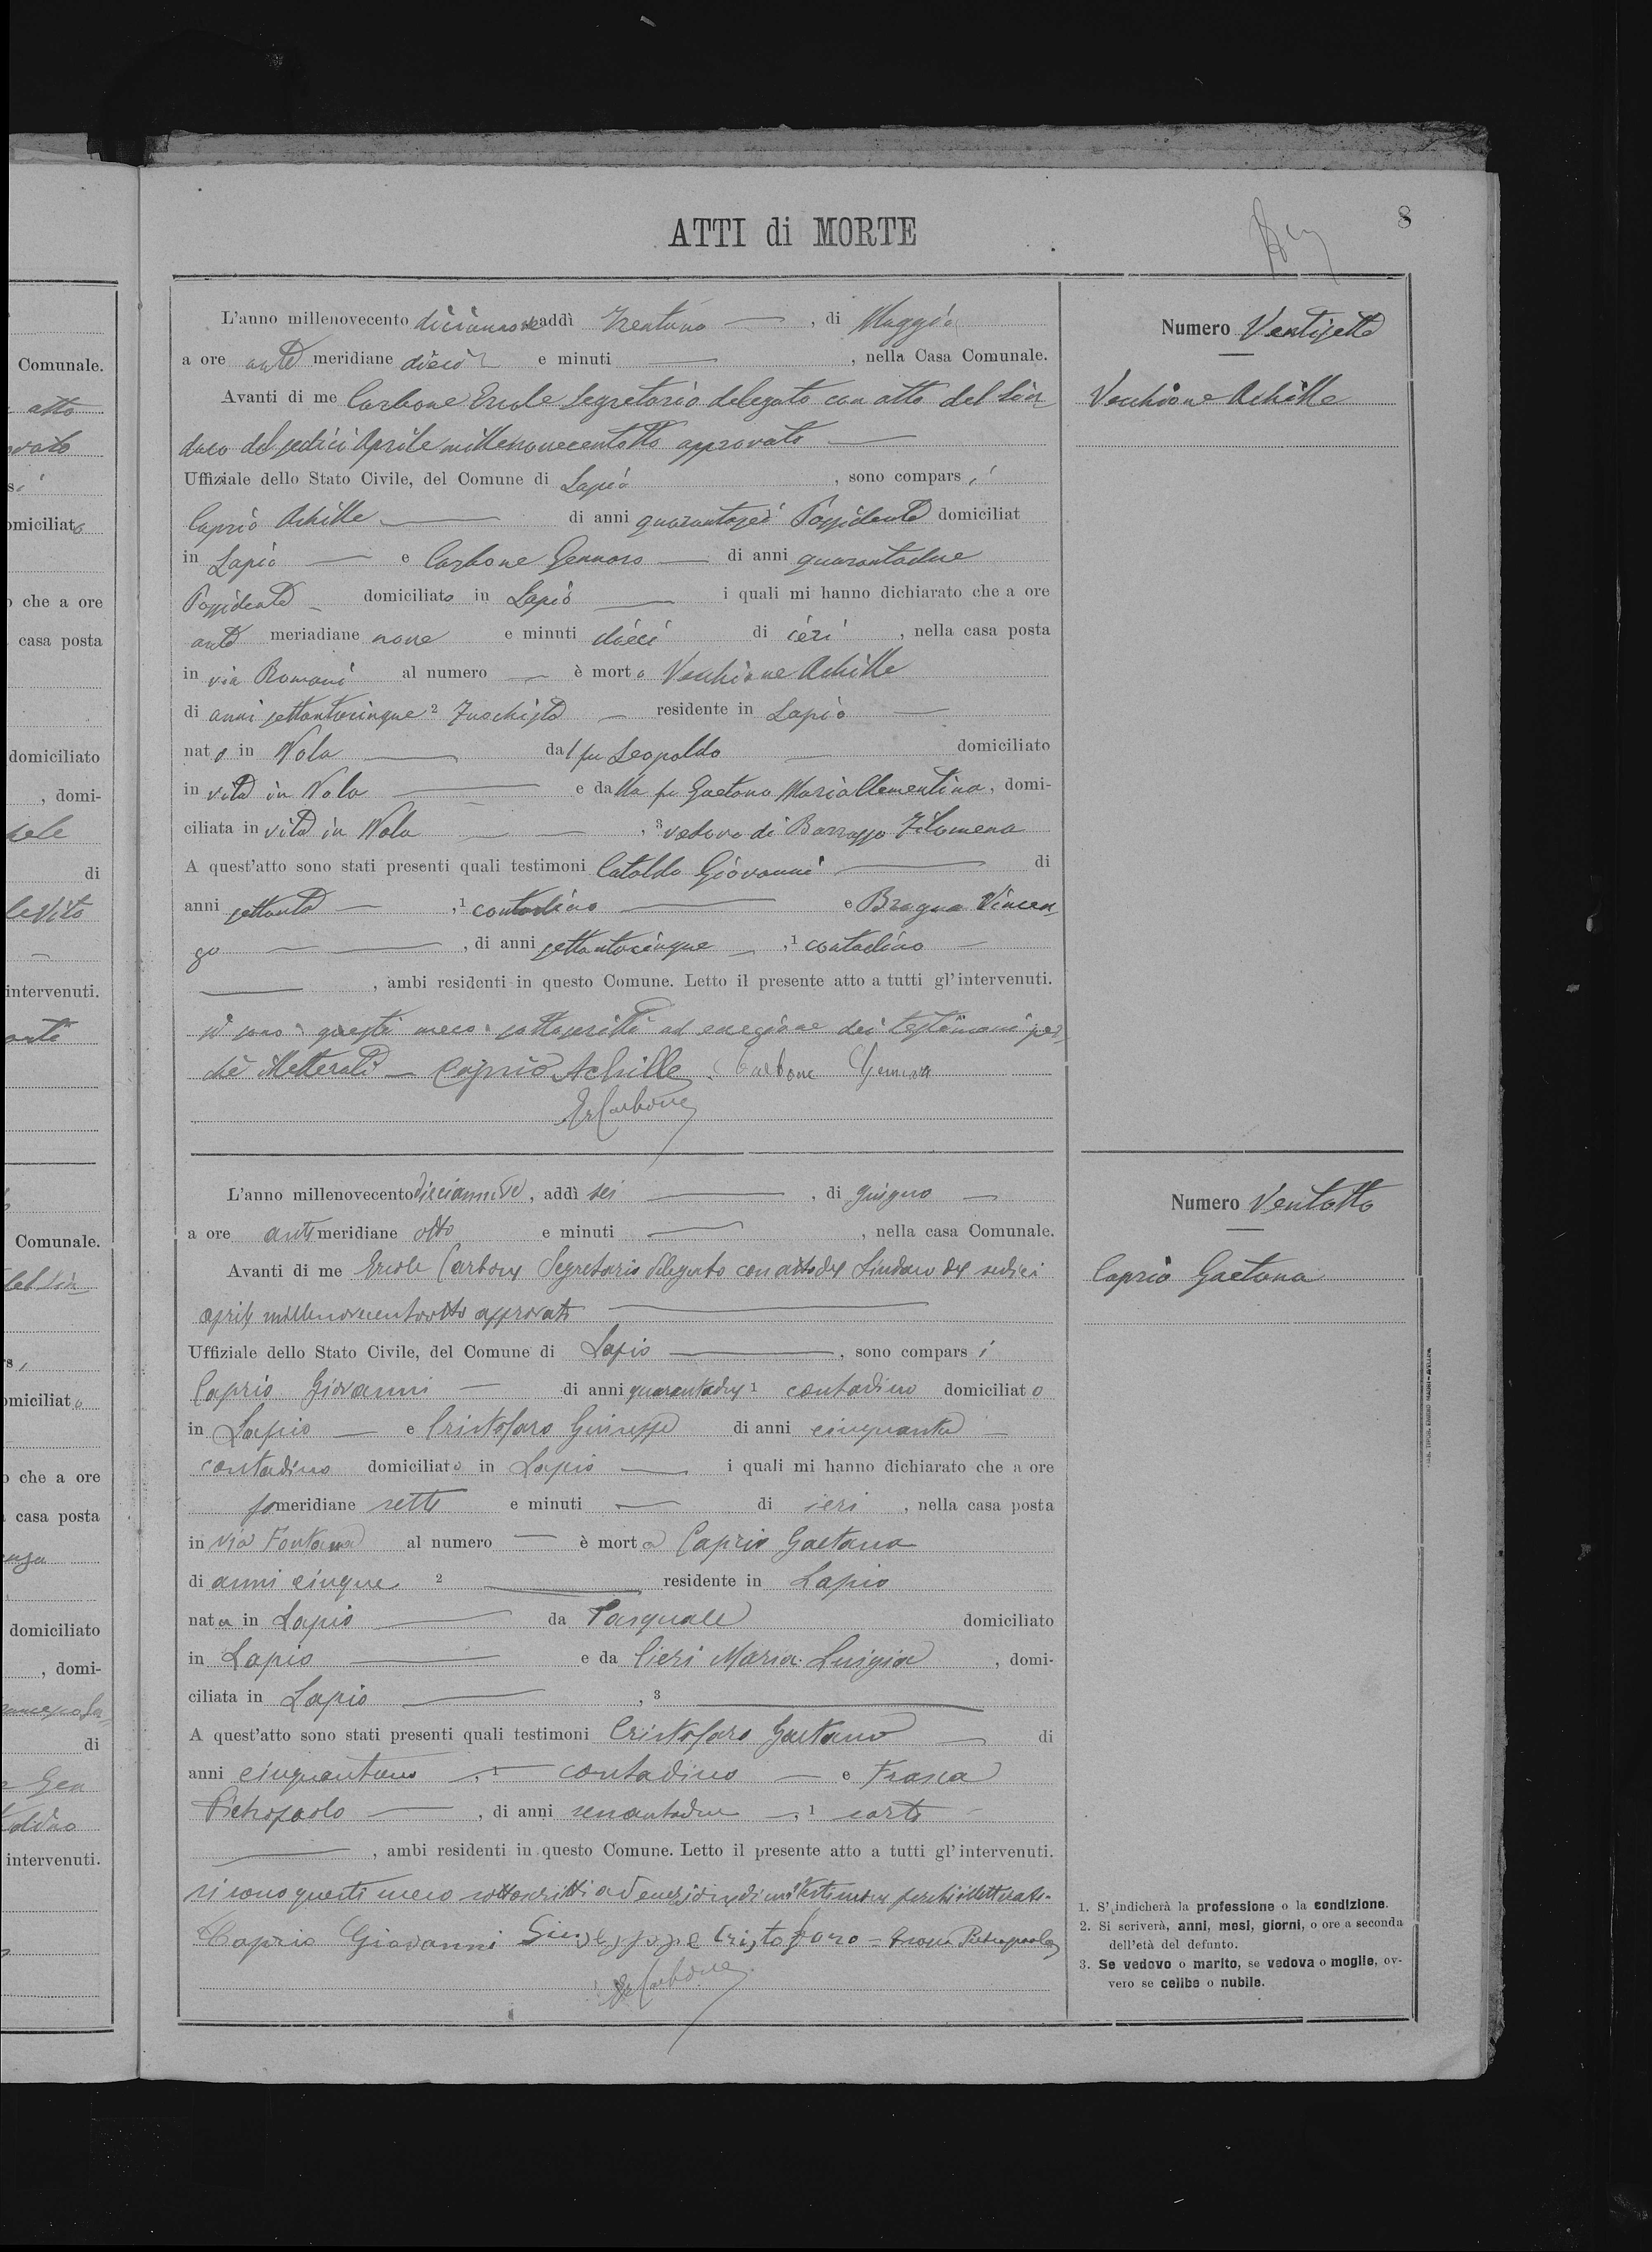 8
ATTI di MORTE
L'anno millenovecento diciannove addì trentuno, di Maggio
a ore anti meridiane dieci e minuti, nella Casa Comunale.
Avanti di me Carbone Ercole Segretario delegato con atto del Sin-
daco del sedici Aprile millenovecentotto approvato
Uffiziale dello Stato Civile, del Comune di Lapio, sono comparsi
Caprio Achille di anni quarantasei Possidente domiciliat
in Lapio e Carbone Gennaro di anni quarantadue
Possidente domiciliato in Lapio i quali mi hanno dichiarato che a ore
anti meriadiane nove e minuti dieci di ieri, nella casa posta
in via Romani al numero è morto Vecchione Achille
di anni settantacinque 2 Fuochista residente in Lapio
nato in Nola dal fu Leopoldo domiciliato
in vita in Nola e dalla fu Gaetana Maria Clementina, domi-
ciliata in vita in Nola, 3 vedovo di Filomena
A quest'atto sono stati presenti quali testimoni Cataldo Giovanni di
anni settanta, 1 contadino e Bragna Vincen-
zo, di anni settantacinque, 1 contadino
, ambi residenti in questo Comune. Letto il presente atto a tutti gl'intervenuti.
si sono questi meco sottoscritti ad eccezione dei testimoni per-
chè illetterati Caprio Achille Carbone Gennaro
Er Carbone
Numero Ventisette
Vecchione Achille
L'anno millenovecento diciannove, addì sei, di giugno
a ore anti meridiane otto e minuti, nella casa Comunale.
Avanti di me Ercole Carbone Segretario delegato con atto del Sindaco del sedici
aprile millenovecentootto approvato
Uffiziale dello Stato Civile, del Comune di Lapio, sono comparsi
Caprio Giovanni di anni quarantadue 1 contadino domiciliato
in Lapio e Cristofaro Giuseppe di anni cinquanta
contadino domiciliato in Lapio i quali mi hanno dichiarato che a ore
pomeridiane sette e minuti di ieri, nella casa posta
in via Fontana al numero è morta Caprio Gaetana
di anni cinque 2 residente in Lapio
nata in Lapio da Pasquale domiciliato
in Lapio e da Cieri Maria Luigia, domi-
ciliata in Lapio, 3
A quest'atto sono stati presenti quali testimoni Cristofaro Gaetano di
anni cinquantuno, 1 contadino e Frasca
Pietropaolo, di anni sessantadue, 1 sarto
, ambi residenti in questo Comune. Letto il presente atto a tutti gl'intervenuti.
si sono questi meco sottoscritti ad eccezione di un testimone perchè illetterato.
Caprio Giovanni Giuseppe Cristofaro = Frasca Pietropaolo
Er Carbone
Numero Ventotto
Caprio Gaetana
1. S'indicherà la professione o la condizione.
2. Si scriverà, anni, mesi, giorni, o ore a seconda
dell'età del defunto.
3. Se vedovo o marito, se vedova o moglie, ov-
vero se celibe o nubile.
Comunale.
atto
che a ore
casa posta
domiciliato
, domi-
di
intervenuti.
Comunale.
che a ore
casa posta
domiciliato
, domi-
di
intervenuti.